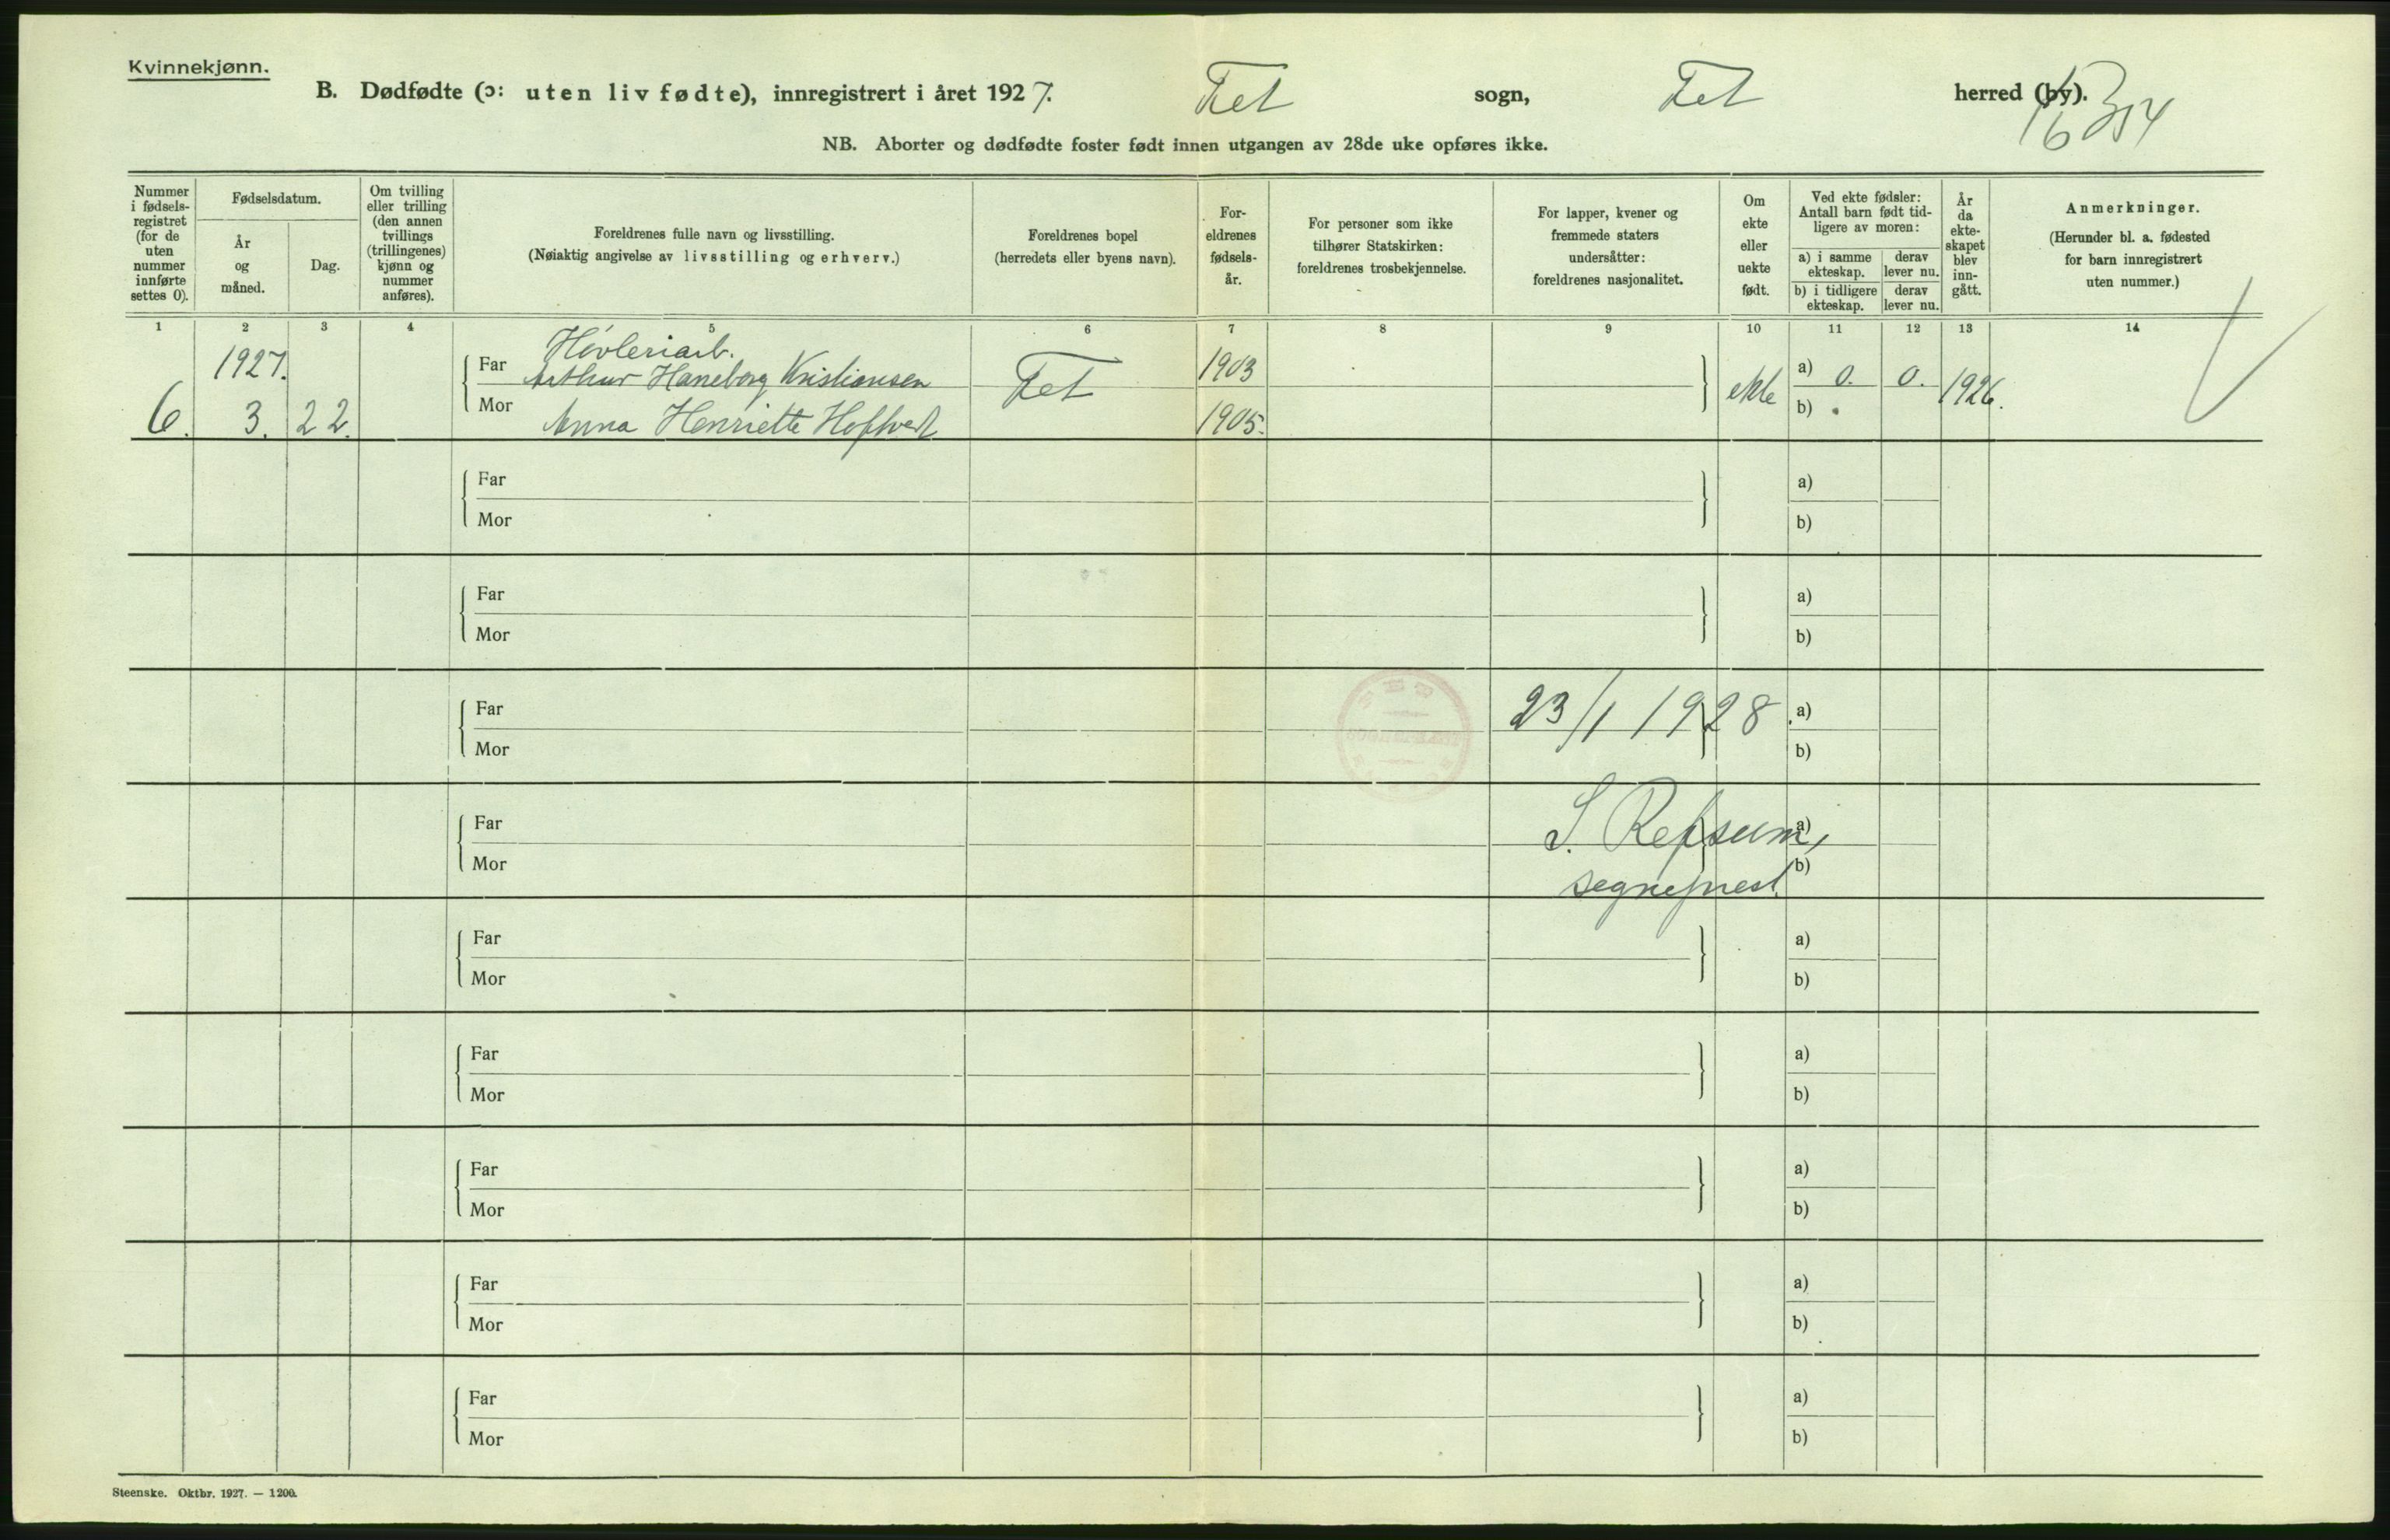 Kvinnekjønn.
B. Dødfødte (ɔ: uten liv fødte), innregistrert i året 1927. Fet sogn, Fet herred (by).
NB. Aborter og dødfødte foster født innen utgangen av 28de uke opføres ikke.
Nummer i fødsels-registret (for de uten nummer innførte settes 0).
Fødselsdatum.
År og måned.
Dag.
Om tvilling eller trilling (den annen tvillings (trillingenes) kjønn og nummer anføres).
Foreldrenes fulle navn og livsstilling.
(Nøiaktig angivelse av livsstilling og erhverv.)
Foreldrenes bopel
(herredets eller byens navn).
For-eldrenes fødsels-år.
For personer som ikke tilhører Statskirken: foreldrenes trosbekjennelse.
For lapper, kvener og fremmede staters undersåtter: foreldrenes nasjonalitet.
Om ekte eller uekte født.
Ved ekte fødsler: Antall barn født tid-ligere av moren:
a) i samme ekteskap.
derav lever nu.
b) i tidligere ekteskap.
derav lever nu.
År da ekte-skapet blev inn-gått.
Anmerkninger.
(Herunder bl. a. fødested for barn innregistrert uten nummer.)
1 2 3 4 5 6 7 8 9 10 11 12 13 14
Høvleriarb.
1927. Far Arthur Haneborg Kristiansen Fet 1903 ekte a) 0. 0. 1926.
6. 3. 22. Mor Anna Henriette 1905. b)
Far a)
Mor b)
Far a)
Mor b)
Far 23/1 1928. a)
Mor b)
Far S. Refsum, a)
Mor sogneprest. b)
Far a)
Mor b)
Far a)
Mor b)
Far a)
Mor b)
Far a)
Mor b)
Far a)
Mor b)
Steenske. Oktbr. 1927. — 1200.